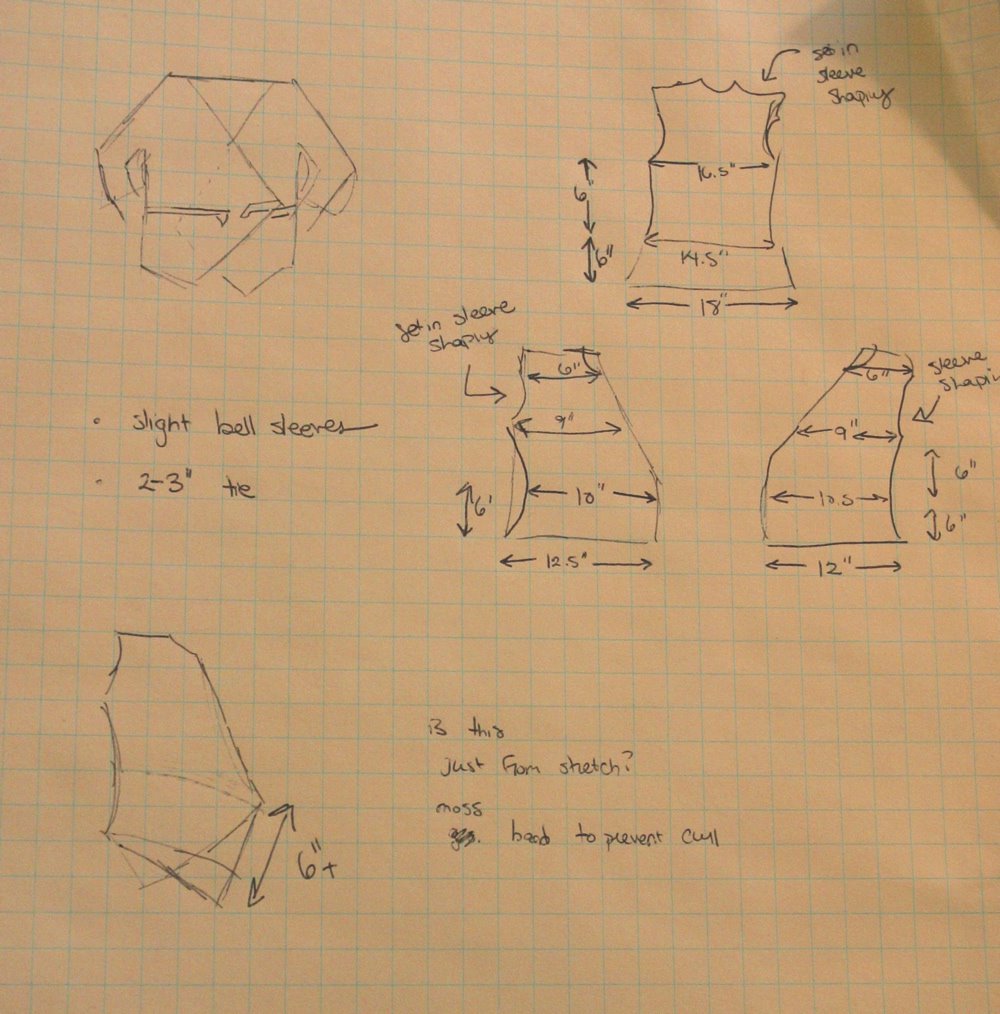 set in
sleeve
shaping
16.5"
6"
14.5"
6"
18"
set in sleeve
shaping
6"
9"
10"
6'
12.5"
6"
sleeve
shapin
9"
6"
10.5
6"
12"
• slight bell sleeves
• 2-3" tie
6"+
is this
just from stretch?
moss
band to prevent curl